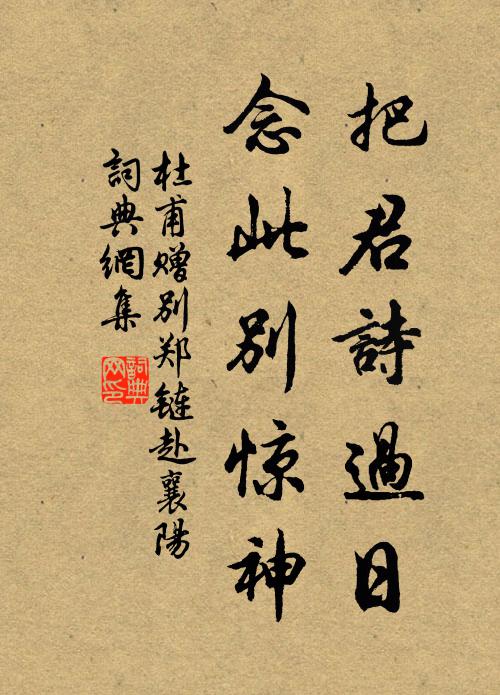 把君詩過日
念此別惊神
杜甫赠别郑链赴襄陽
詞典網集
詞典网印